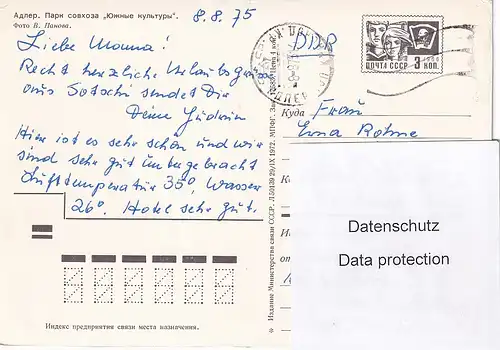 Адлер. Парк совхоза „Южные культуры".
Фото В. Панова.
8.8.75
Liebe Mouna!
Recht herzliche Urlaubsgrüße
aus Sotschi sendet Dir
Deine Gudrun
Hier ist es sehr schön und wir
sind sehr gut untergebracht
Lufttemperatur 35°, Wasser
26°. Hotel sehr gut.
Индекс предприятия связи места назначения.
Издание Министерства связи СССР. 29/IX 1972. МПФГ.
DDR
ПОЧТА СССР 3 КОП.
1966
Куда
Frau
Erna Rohme
Datenschutz
Data protection